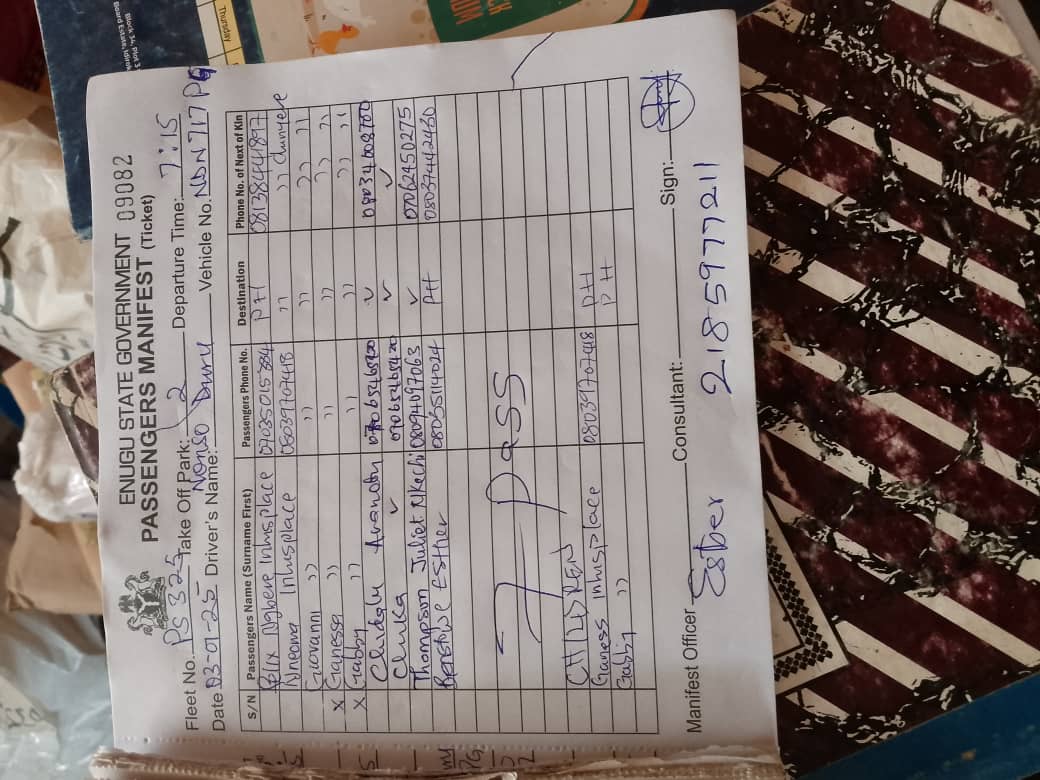 ENUGU STATE GOVERNMENT 09082
PASSENGERS MANIFEST (Ticket)
Fleet No. PS 325 Take Off Park: 2 Departure Time: 7:15
Date 03-01-25 Driver's Name: Nonso Duru Vehicle No. NSN 717 PG
S/N Passengers Name (Surname First) Passengers Phone No. Destination Phone No. of Next of Kin
Felix Ngbere Inhisplace 07035015384 PH 08138444897
Nneoma Inhisplace 08039707418 ,, ,, chinyere
Giovanni ,, ,, ,, ,, ,,
X Ganessa ,, ,, ,, ,, ,,
X Gabby ,, ,, ,, ,, ,,
Chidalu 07065468420 ✓ 08034608700
Chuka ✓ 07065468420 ✓ ✓
Thompson Juliet Nkechi 08094017063 ✓ 07062450275
Esther 08035514024 PH 08037442480
7 Pass
CHILDREN
Ganess Inhisplace 08039707418 PH
Gabby ,, PH
Manifest Officer Esther Consultant: Sign:
2185977211
Thursday